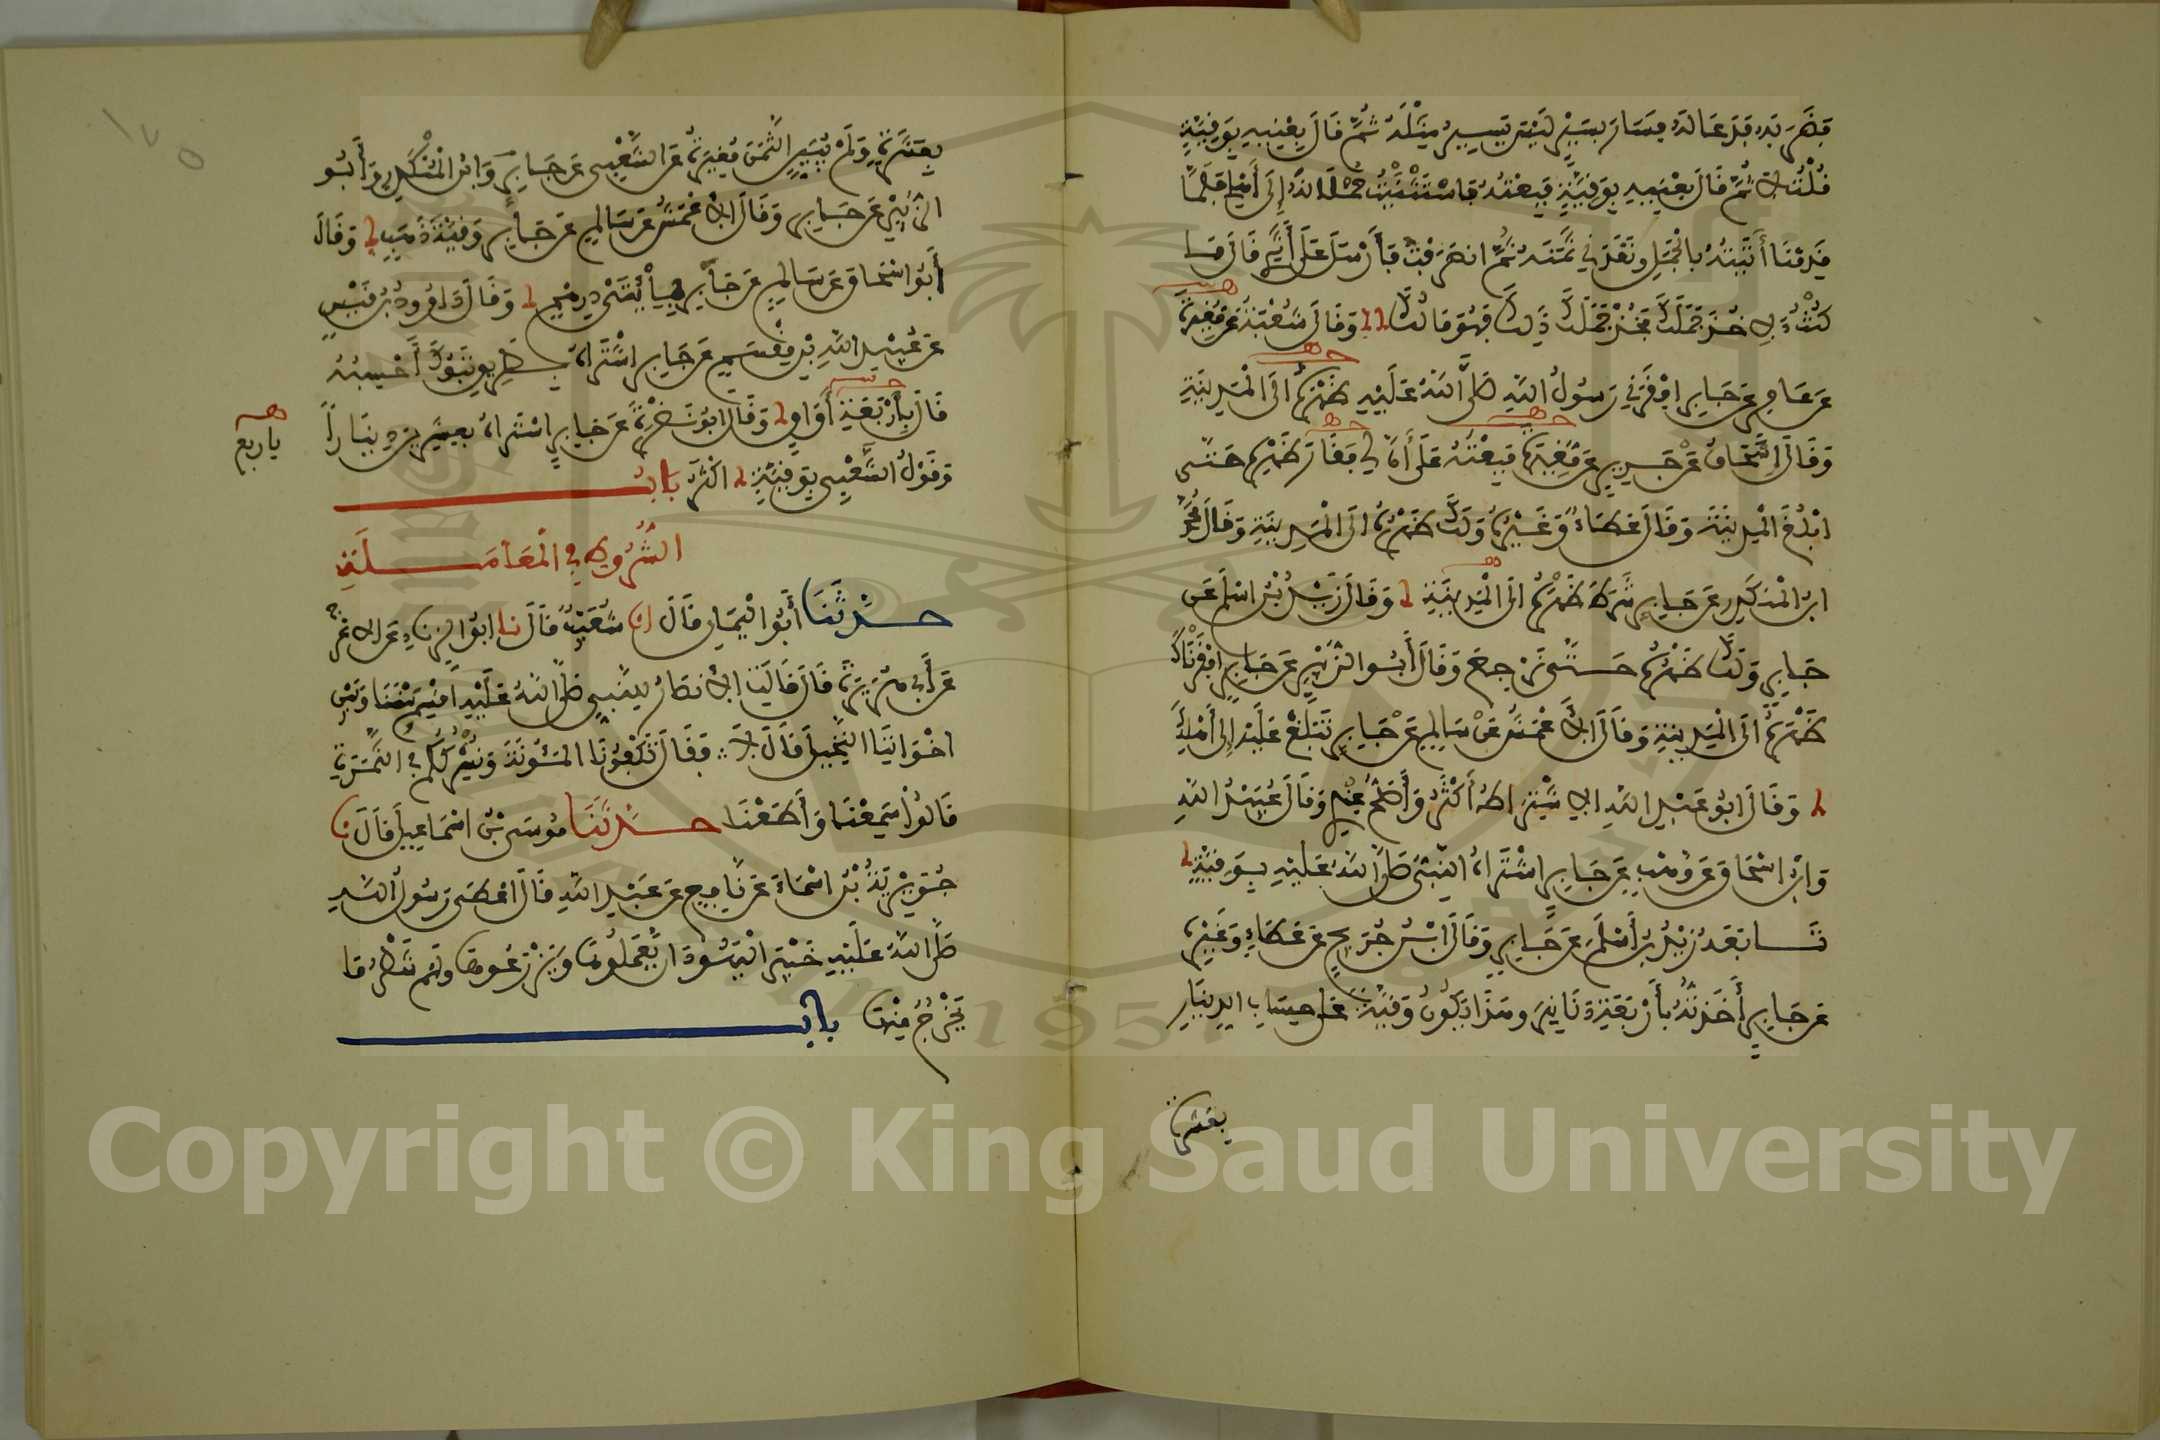 فضربه فدعا له فسار بسير ليس يسير مثله ثم قال بعنيه بوقية
قلت لا ثم قال بعنيه بوقية فبعته فاستثنيت حملانه إلى أهلي فلما
قدمنا أتيته بالجمل ونقدني ثمنه ثم انصرفت فأرسل على أثري قال ما
كنت لآخذ جملك فخذ جملك ذلك فهو مالك وقال شعبة عن مغيرة
عن عامر عن جابر افقرني رسول الله صلى الله عليه ظهره الى المدينة
وقال اسحاق عن جرير عن مغيرة فبعته على أن لي فقار ظهره حتى
ابلغ المدينة وقال عطاء وغيره ولك ظهره الى المدينة وقال محمد
ابن المنكدر عن جابر شرط ظهره الى المدينة وقال زيد بن اسلم عن
جابر ولك ظهره حتى ترجع وقال أبو الزبير عن جابر افقرناك
ظهره الى المدينة وقال الاعمش عن سالم عن جابر تبلغ عليه إلى أهلك
وقال ابو عبد الله الاشتراط أكثر وأصح عندي وقال عبيد الله
وابن اسحاق عن وهب عن جابر اشتراه النبي صلى الله عليه بوقية
تابعه زيد بن أسلم عن جابر وقال ابن جريج عن عطاء وغيره
عن جابر أخذته بأربعة دنانير وهذا يكون وقية على حساب الدينار
بعشرة
١٧٥
بعشرة ولم يبين الثمن مغيرة عن الشعبي عن جابر وابن المنكدر وأبو
الزبير عن جابر وقال الاعمش عن سالم عن جابر وقية ذهب وقال
أبو اسحاق عن سالم عن جابر بمائتي درهم وقال داوود بن قيس
عن عبيد الله بن مقسم عن جابر اشتراه بطريق تبوك أحسبه
قال بأربعة أواق وقال ابو نضرة عن جابر اشتراه بعشرين دينارا
باربع
وقول الشعبي بوقية اكثر باب
الشروط في المعاملة
حدثنا أبو اليمان قال انا شعيب قال نا ابو الزناد عن الاعرج
عن أبي هريرة قال قالت الانصار للنبي صلى الله عليه اقسم بيننا وبين
اخواننا النخيل قال لا فقال تكفونا المئونة ونشرككم في الثمرة
قالوا سمعنا وأطعنا حدثنا موسى بن اسماعيل قال نا
جويرية بن اسماء عن نافع عن عبد الله قال اعطى رسول الله
صلى الله عليه خيبر اليهود ان يعملوها ويزرعوها ولهم شطر ما
يخرج منها باب
Copyright © King Saud University
1957